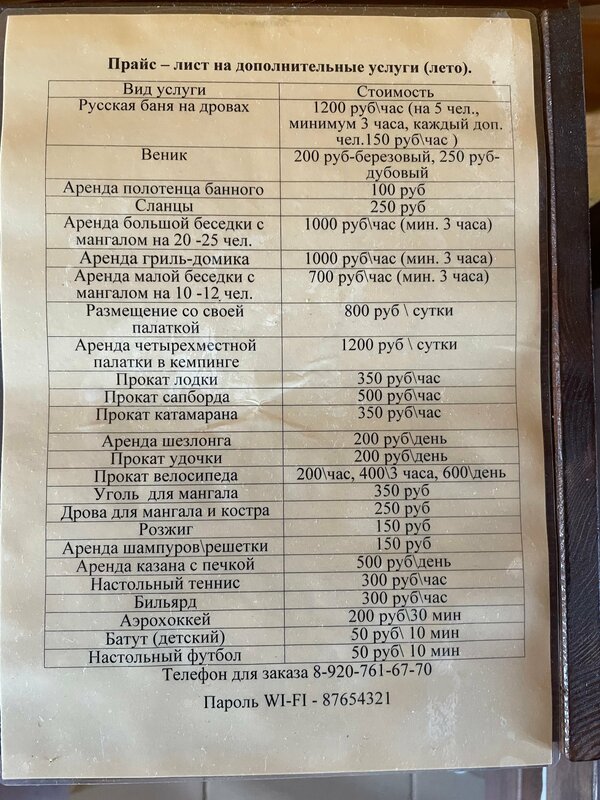 Прайс – лист на дополнительные услуги (лето).
Вид услуги Стоимость
Русская баня на дровах 1200 руб\час (на 5 чел.,
минимум 3 часа, каждый доп.
чел.150 руб\час )
Веник 200 руб-березовый, 250 руб-
дубовый
Аренда полотенца банного 100 руб
Сланцы 250 руб
Аренда большой беседки с 1000 руб\час (мин. 3 часа)
мангалом на 20 -25 чел.
Аренда гриль-домика 1000 руб\час (мин. 3 часа)
Аренда малой беседки с 700 руб\час (мин. 3 часа)
мангалом на 10 -12 чел.
Размещение со своей 800 руб \ сутки
палаткой
Аренда четырехместной 1200 руб \ сутки
палатки в кемпинге
Прокат лодки 350 руб\час
Прокат сапборда 500 руб\час
Прокат катамарана 350 руб\час
Аренда шезлонга 200 руб\день
Прокат удочки 200 руб\день
Прокат велосипеда 200\час, 400\3 часа, 600\день
Уголь для мангала 350 руб
Дрова для мангала и костра 250 руб
Розжиг 150 руб
Аренда шампуров\решетки 150 руб
Аренда казана с печкой 500 руб\день
Настольный теннис 300 руб\час
Бильярд 300 руб\час
Аэрохоккей 200 руб\30 мин
Батут (детский) 50 руб\ 10 мин
Настольный футбол 50 руб\ 10 мин
Телефон для заказа 8-920-761-67-70
Пароль WI-FI - 87654321